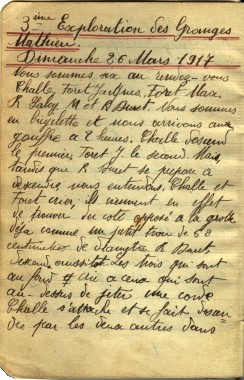 3ème Exploration des Granges
Mathieu.
Dimanche 26 Mars 1917
Nous sommes six au rendez-vous
Challe, Foret Jacques, Foret Max.
R Galey, M et R Buret. Nous sommes
en bicyclette et nous arrivons au
gouffre à 2 heures. Challe descend
le premier Foret J. le second. Mais,
tandis que R Buret se prépare à
descendre nous entendons Challe et
Foret crier, ils viennent en effet
de trouver du coté opposé à la grotte
déja connue un petit trou de 50
centimètres de diamètre R Buret
descend aussitot les trois qui sont
au fond crie à ceux qui sont
au-dessus de jeter une corde
Challe s'attache et se fait descen
dre par les deux autres dans